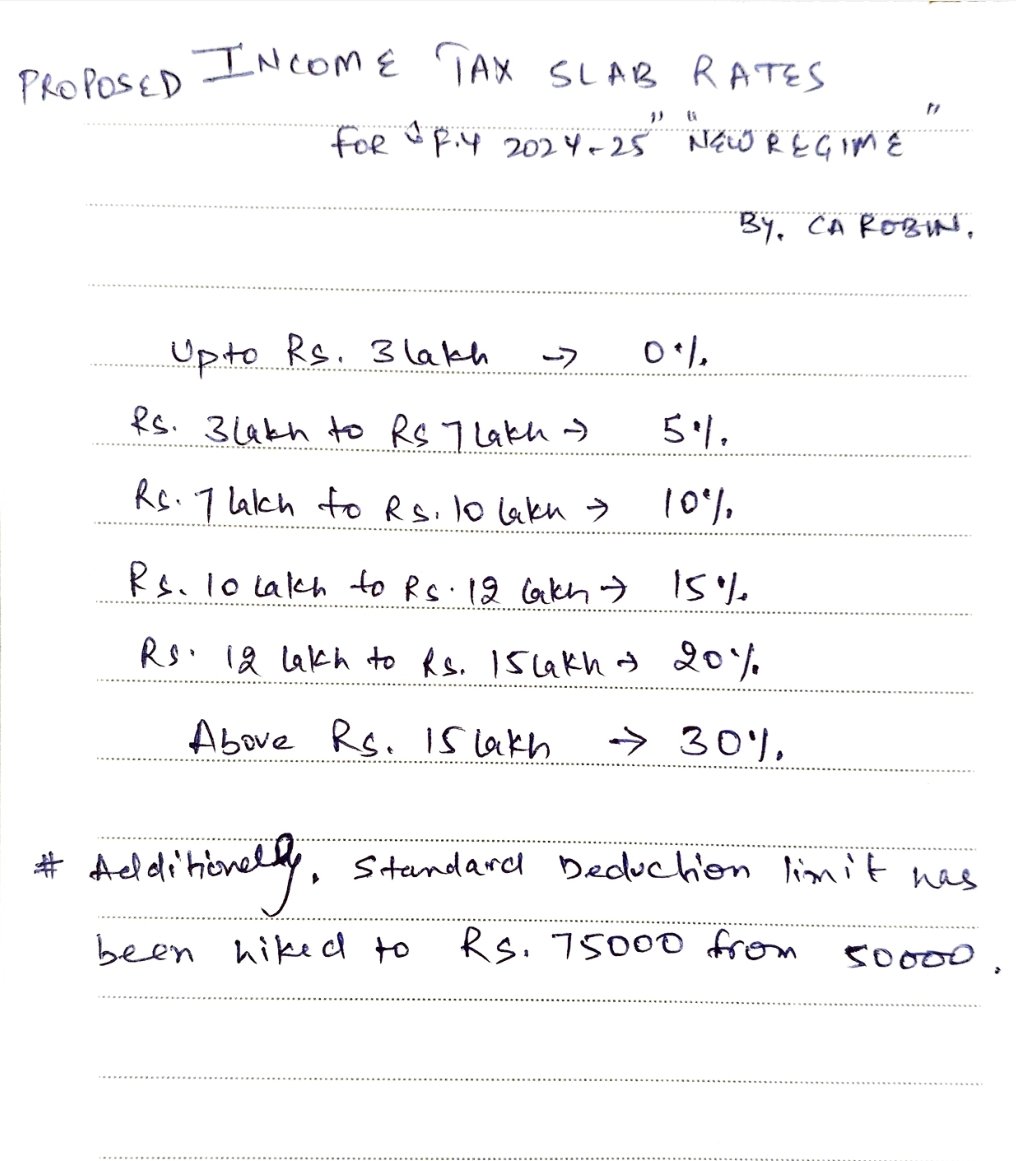 PROPOSED INCOME TAX SLAB RATES
FOR F.Y 2024-25" "NEW REGIME"
BY. CA ROBIN.
Upto Rs. 3 lakh → 0%
Rs. 3 lakh to Rs 7 lakh → 5%
Rs. 7 lakh to Rs. 10 lakh → 10%
Rs. 10 lakh to Rs. 12 lakh → 15%
Rs. 12 lakh to Rs. 15 lakh → 20%
Above Rs. 15 lakh → 30%
# Additionally, Standard Deduction limit has
been hiked to Rs. 75000 from 50000.